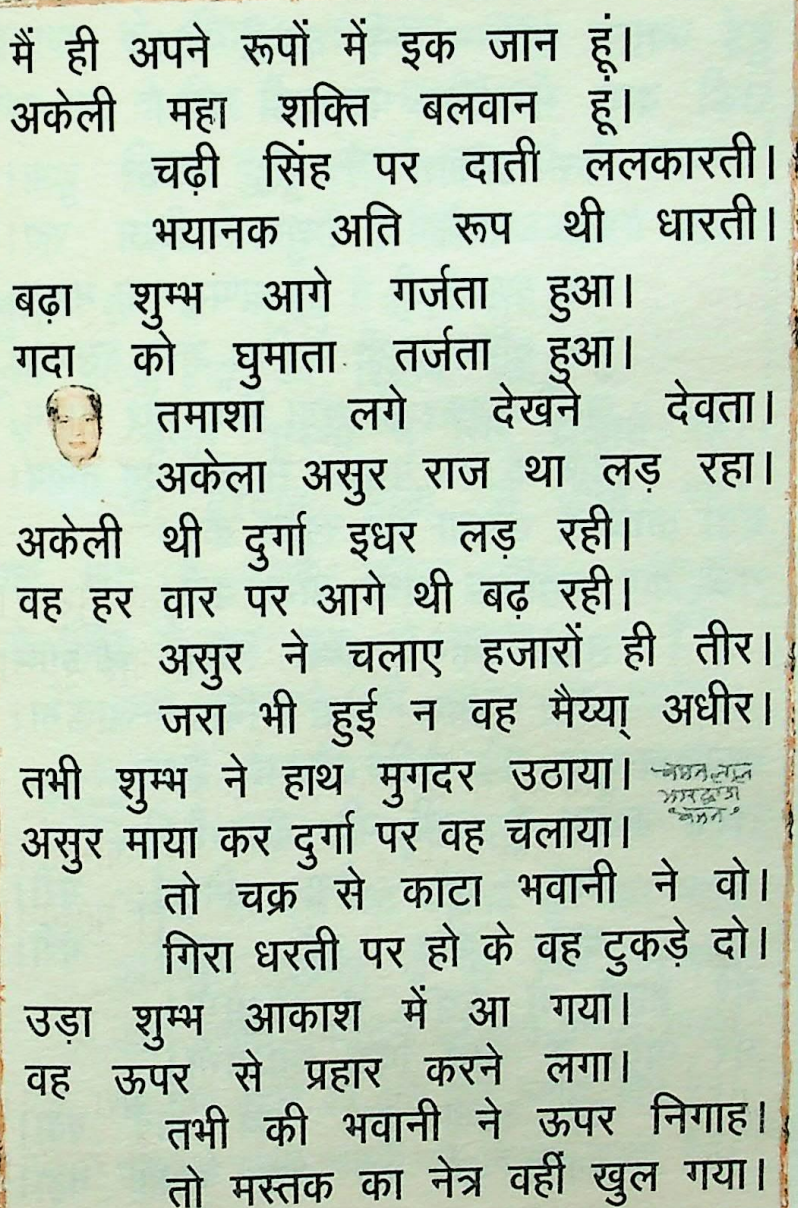 मैं ही अपने रूपों में इक जान हूं।
अकेली महा शक्ति बलवान हूं।
चढ़ी सिंह पर दाती ललकारती।
भयानक अति रूप थी धारती।
बढ़ा शुम्भ आगे गर्जता हुआ।
गदा को घुमाता तर्जता हुआ।
तमाशा लगे देखने देवता।
अकेला असुर राज था लड़ रहा।
अकेली थी दुर्गा इधर लड़ रही।
वह हर वार पर आगे थी बढ़ रही।
असुर ने चलाए हजारों ही तीर।
जरा भी हुई न वह मैय्या् अधीर।
तभी शुम्भ ने हाथ मुगदर उठाया।
असुर माया कर दुर्गा पर वह चलाया।
तो चक्र से काटा भवानी ने वो।
गिरा धरती पर हो के वह टुकड़े दो।
उड़ा शुम्भ आकाश में आ गया।
वह ऊपर से प्रहार करने लगा।
तभी की भवानी ने ऊपर निगाह।
तो मस्तक का नेत्र वहीं खुल गया।